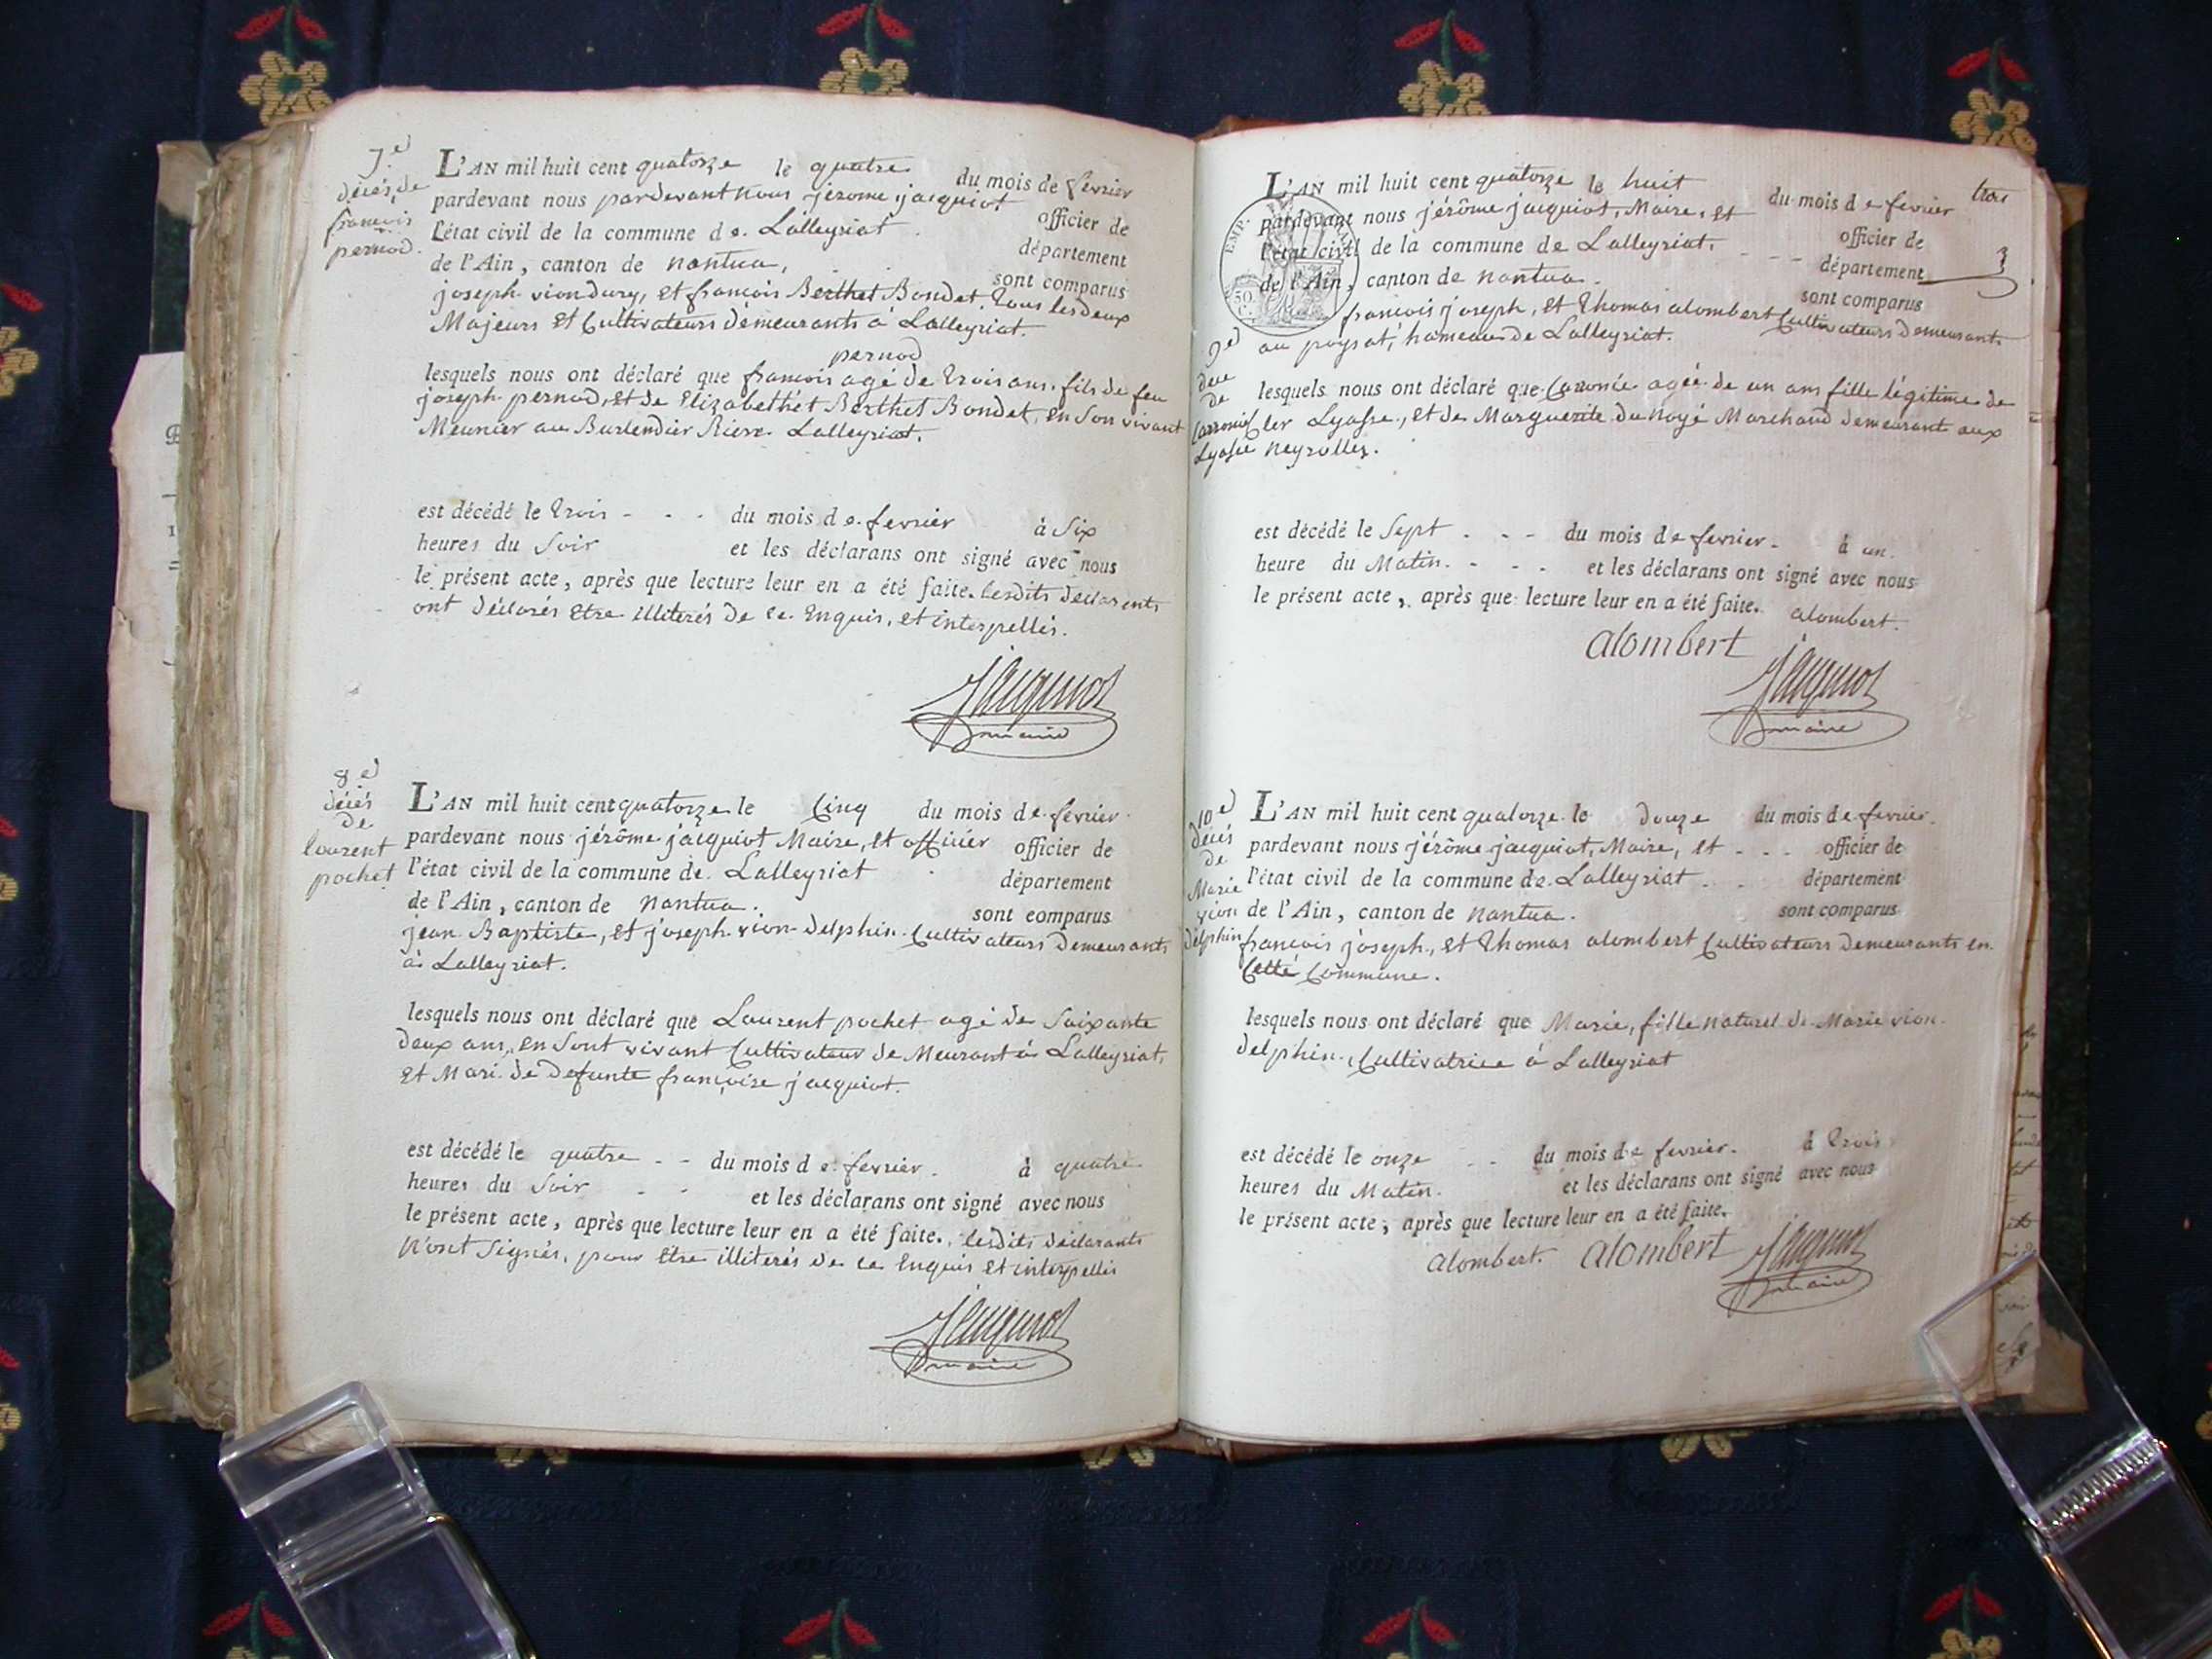 7.e
décés de
francois
pernod.
L'AN mil huit cent quatorze le quatre du mois de février
pardevant nous pardevant nous jérome jacquiot officier de
l'état civil de la commune de Lalleyriat département
de l'Ain, canton de nantua, sont comparus
joseph viondury, et francois Berthet Bondet tous les deux
Majeurs et Cultivateurs demeurants à Lalleyriat.
pernod
lesquels nous ont déclaré que francois agé de trois ans, fils de feu
joseph pernod, et de Elizabethét Berthet Bondet, en son vivant
Meunier au Burlendier Riere Lalleyriat.
est décédé le trois - - - du mois de fevrier à Six
heures du Soir et les déclarans ont signé avec nous
le présent acte, après que lecture leur en a été faite. lesdits declarents
ont déclarés etre illiterés de ce enquis, et interpellés.
Jacquiot
maire
8.e
décés
de
laurent
pochet
L'AN mil huit cent quatorze le Cinq du mois de février
pardevant nous jérôme jacquiot Maire, et officier officier de
l'état civil de la commune de Lalleyriat département
de l'Ain, canton de nantua. sont comparus
jean Baptiste, et joseph vion-delphin Cultivateurs demeurants
à Lalleyriat.
lesquels nous ont déclaré que Laurent pochet agé de Soixante
deux ans, en sont vivant Cultivateur de Meurant à Lalleyriat,
et Mari de defunte françoise jacquiot.
est décédé le quatre - - du mois de fevrier. à quatre
heures du Soir - - et les déclarans ont signé avec nous
le présent acte, après que lecture leur en a été faite. lesdits déclarants
n'ont Signés, pour etre illiterés de ce enquis et interpellés
Jacquiot
maire
trois
3
EMP.
50.
C.
L'AN mil huit cent quatorze le huit du mois de fevrier
pardevant nous jérôme jacquiot, Maire, et officier de
l'état civil de la commune de Lalleyriat. - - - département
de l'Ain, canton de nantua. sont comparus
francois joseph, et thomas alombert Cultivateurs demeurants
au poysat, hameau de Lalleyriat.
9.e
de
Lyasse
lesquels nous ont déclaré que agée de un ans fille légitime de
Lyasse, et de Marguerite du noyé Marchand demeurant aux
neyrolles.
est décédé le Sept - - - du mois de fevrier. à un.
heure du Matin. - - - et les déclarans ont signé avec nous
le présent acte, après que lecture leur en a été faite. alombert.
alombert
Jacquiot
maire
10.e
décés
de
Marie
vion
delphin
L'AN mil huit cent quatorze le douze du mois de fevrier.
pardevant nous jérôme jacquiot, Maire, et - - - officier de
l'état civil de la commune de Lalleyriat - - département
de l'Ain, canton de nantua. sont comparus
francois joseph, et thomas alombert Cultivateurs demeurants en
Cette Commune.
lesquels nous ont déclaré que Marie, fille naturel de Marie vion
delphin, Cultivatrice à Lalleyriat
est décédé le onze - - du mois de fevrier. à trois
heures du Matin. et les déclarans ont signé avec nous
le présent acte, après que lecture leur en a été faite.
alombert. alombert Jacquiot
maire